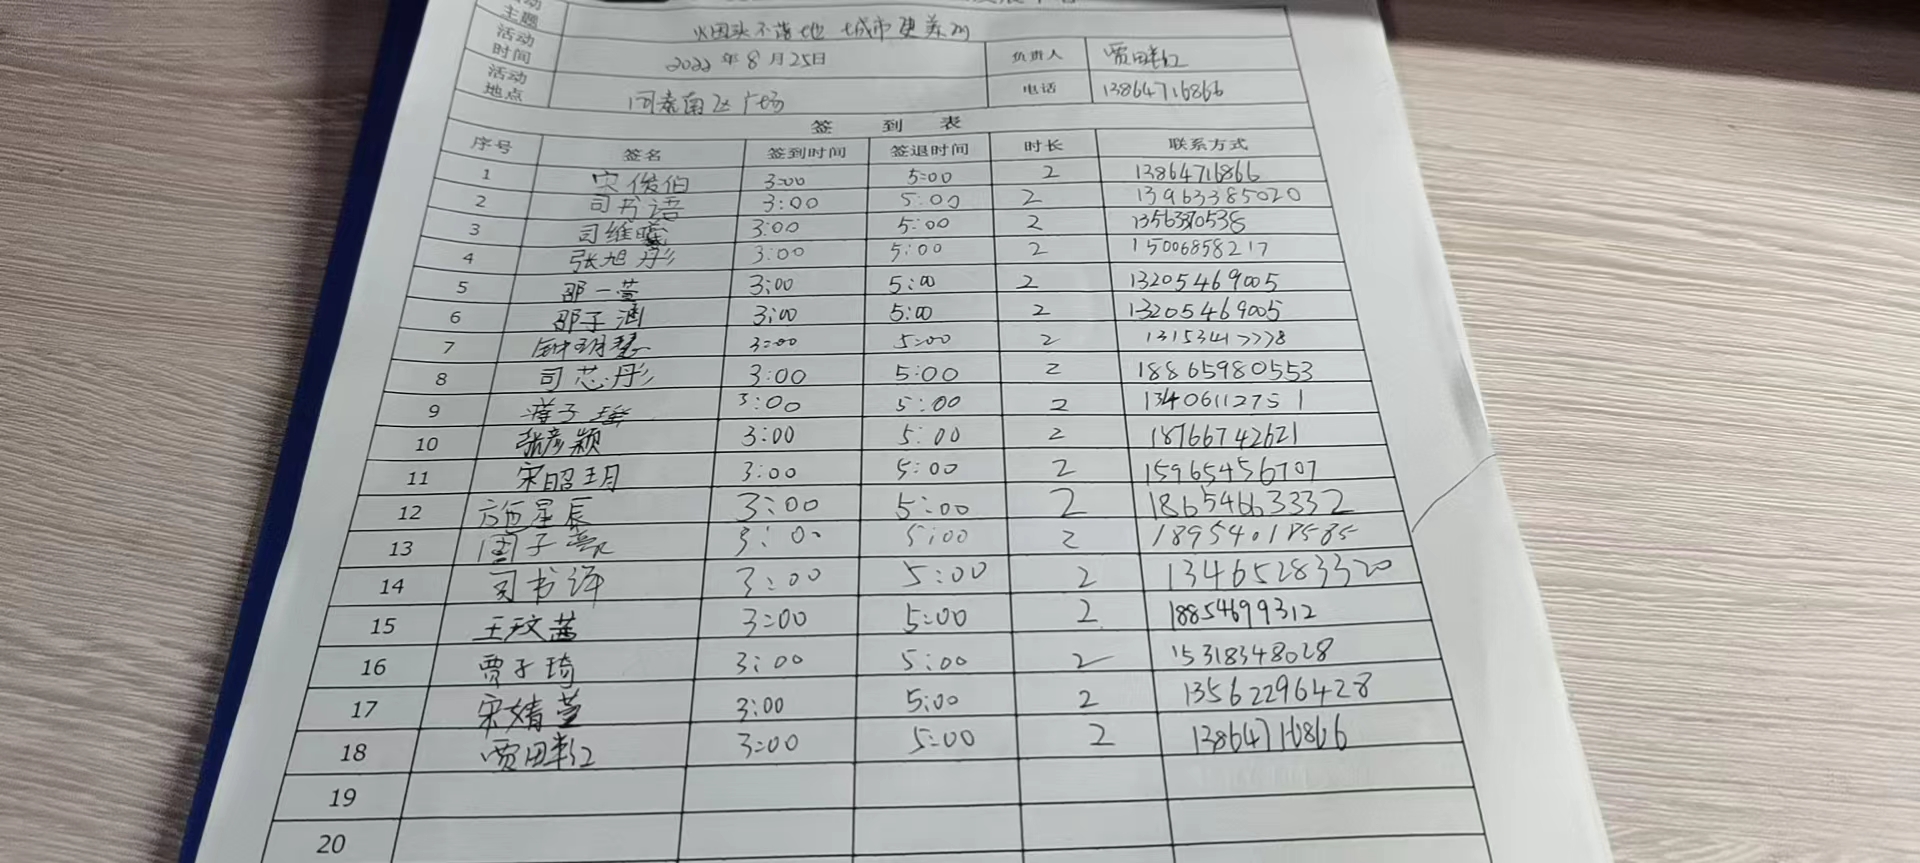 主题 烟头不落地 城市更美丽
活动时间 2022年8月25日 负责人 贾田畔红
活动地点 南区广场 电话 13864716866
签 到 表
序号 签名 签到时间 签退时间 时长 联系方式
1 宋俊伯 3:00 5:00 2 13864716866
2 司书语 3:00 5:00 2 13963385020
3 司维曦 3:00 5:00 2
4 张旭彤 3:00 5:00 2 15006858217
5 邵一萱 3:00 5:00 2 13205469005
6 邵子涵 3:00 5:00 2 13205469005
7 钟玥慧 3:00 5:00 2
8 司芯彤 3:00 5:00 2 18865980553
9 3:00 5:00 2 13406112751
10 张彦颖 3:00 5:00 2 18766742621
11 宋昭玥 3:00 5:00 2 15965456707
12 施星辰 3:00 5:00 2 18654663332
13 3:00 5:00 2 18954018585
14 司书译 3:00 5:00 2 13465283320
15 王玟茜 3:00 5:00 2 18854699312
16 贾子琦 3:00 5:00 2 15318348028
17 宋婧萱 3:00 5:00 2 13562296428
18 贾田畔红 3:00 5:00 2 13864716866
19
20